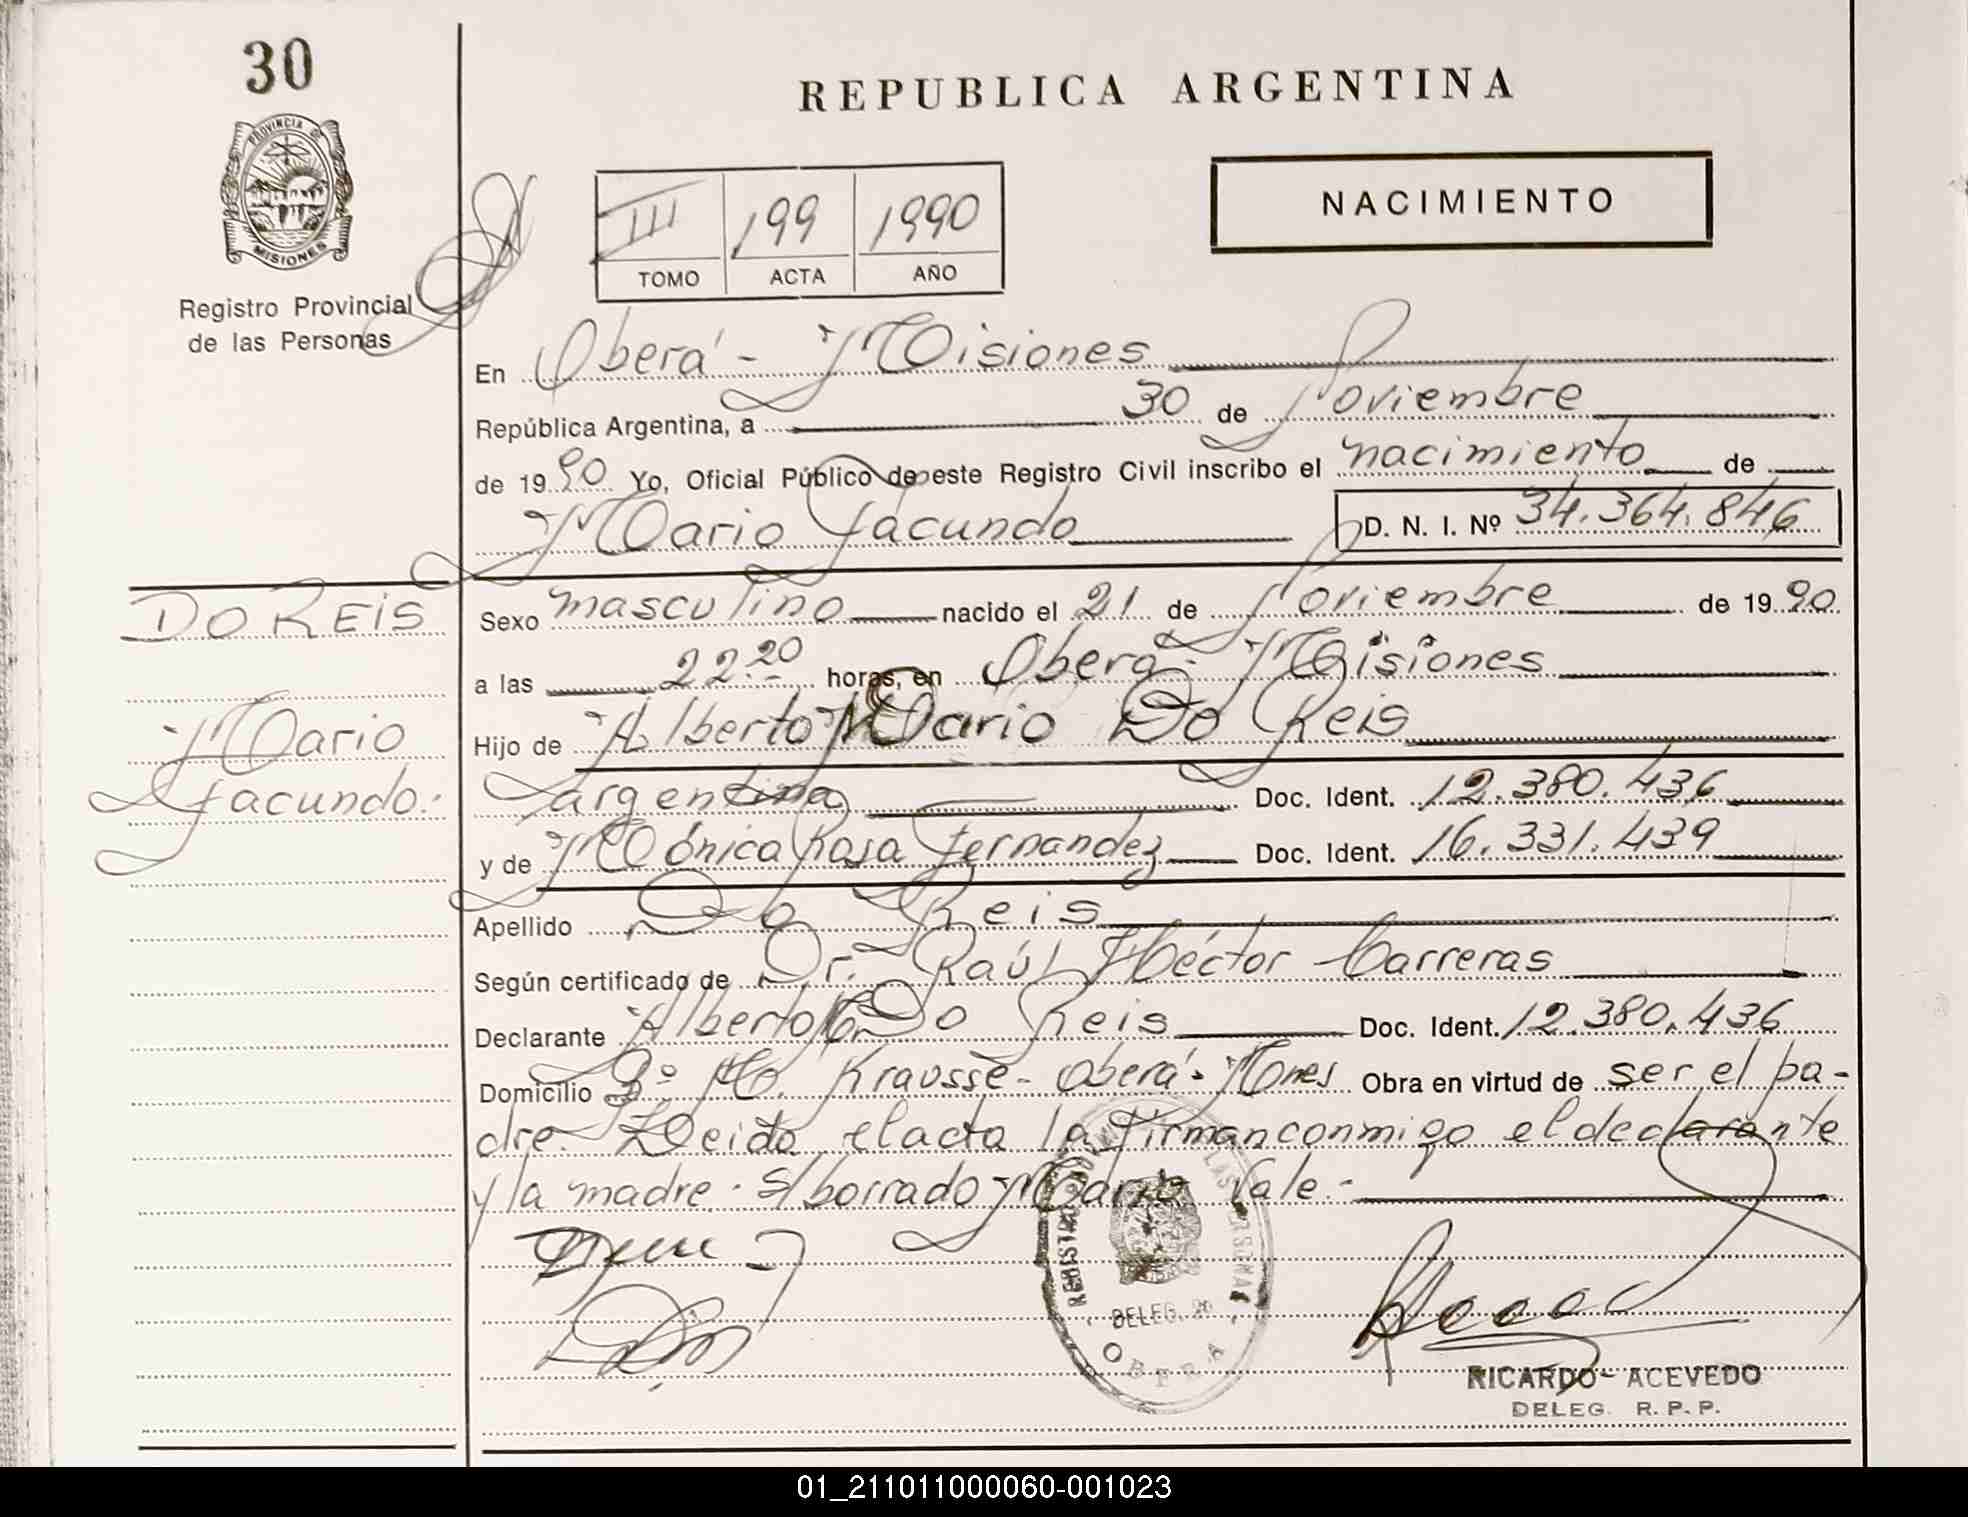 30
PROVINCIA DE
MISIONES
Registro Provincial
de las Personas
REPUBLICA ARGENTINA
NACIMIENTO
III 199 1990
TOMO ACTA AÑO
En Oberá - Misiones
República Argentina, a 30 de Noviembre
de 1990 Yo, Oficial Público de este Registro Civil inscribo el nacimiento de
Mario Facundo D. N. I. Nº 34.364.846
DO REIS
Mario
Facundo.-
Sexo masculino nacido el 21 de Noviembre de 1990
a las 22.20 horas, en Oberá - Misiones
Hijo de Alberto Mario Do Reis
argentina Doc. Ident. 12.380.436
y de Mónica Rosa Fernandez Doc. Ident. 16.331.439
Apellido Do Reis
Según certificado de Dr. Raúl Héctor Carreras
Declarante Alberto Do Reis Doc. Ident. 12.380.436
Domicilio Krausse - Oberá - Mnes Obra en virtud de ser el pa-
dre. Leida el acta la firman conmigo el declarante
y la madre. S/borrado Mario Vale.-
DELEG. 20
OBERA
RICARDO ACEVEDO
DELEG. R. P. P.
01_211011000060-001023